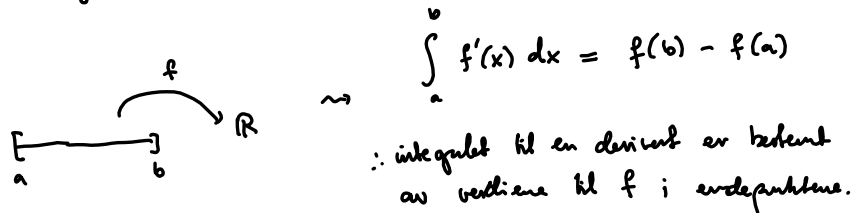 ∫_a^b f'(x) dx = f(b) - f(a)
f
⇝
ℝ
[ ]
a b
∴ integralet til en derivert er bestemt
av verdiene til f i endepunktene.